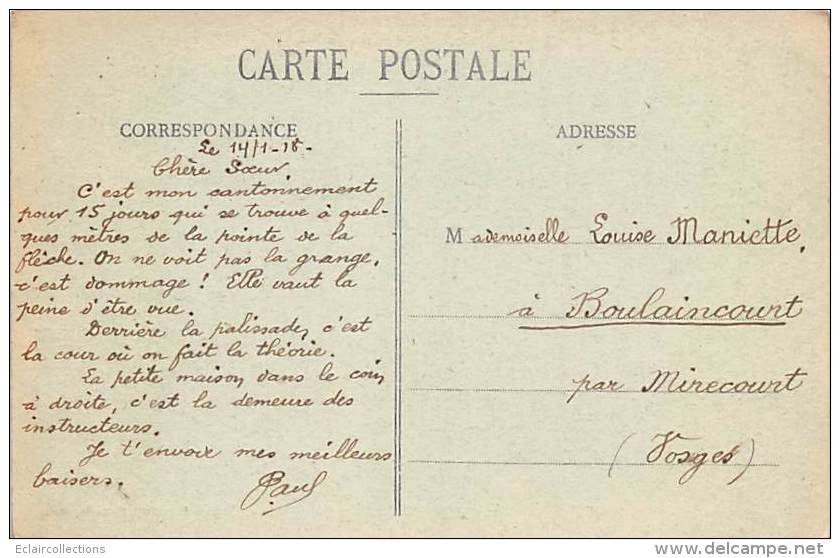 CARTE POSTALE
CORRESPONDANCE
Le 14/1-18-
Chère Sœur,
C'est mon cantonnement
pour 15 jours qui se trouve à quel-
ques mètres de la pointe de la
flêche. On ne voit pas la grange,
c'est dommage ! Elle vaut la
peine d'être vue.
Derrière la palissade, c'est
la cour où on fait la théorie.
La petite maison dans le coin
à droite, c'est la demeure des
instructeurs.
Je t'envoie mes meilleurs
baisers.
Paul
ADRESSE
Mademoiselle Louise Maniette,
à Boulaincourt
par Mirecourt
(Vosges)
Eclaircollections
delcampe.net